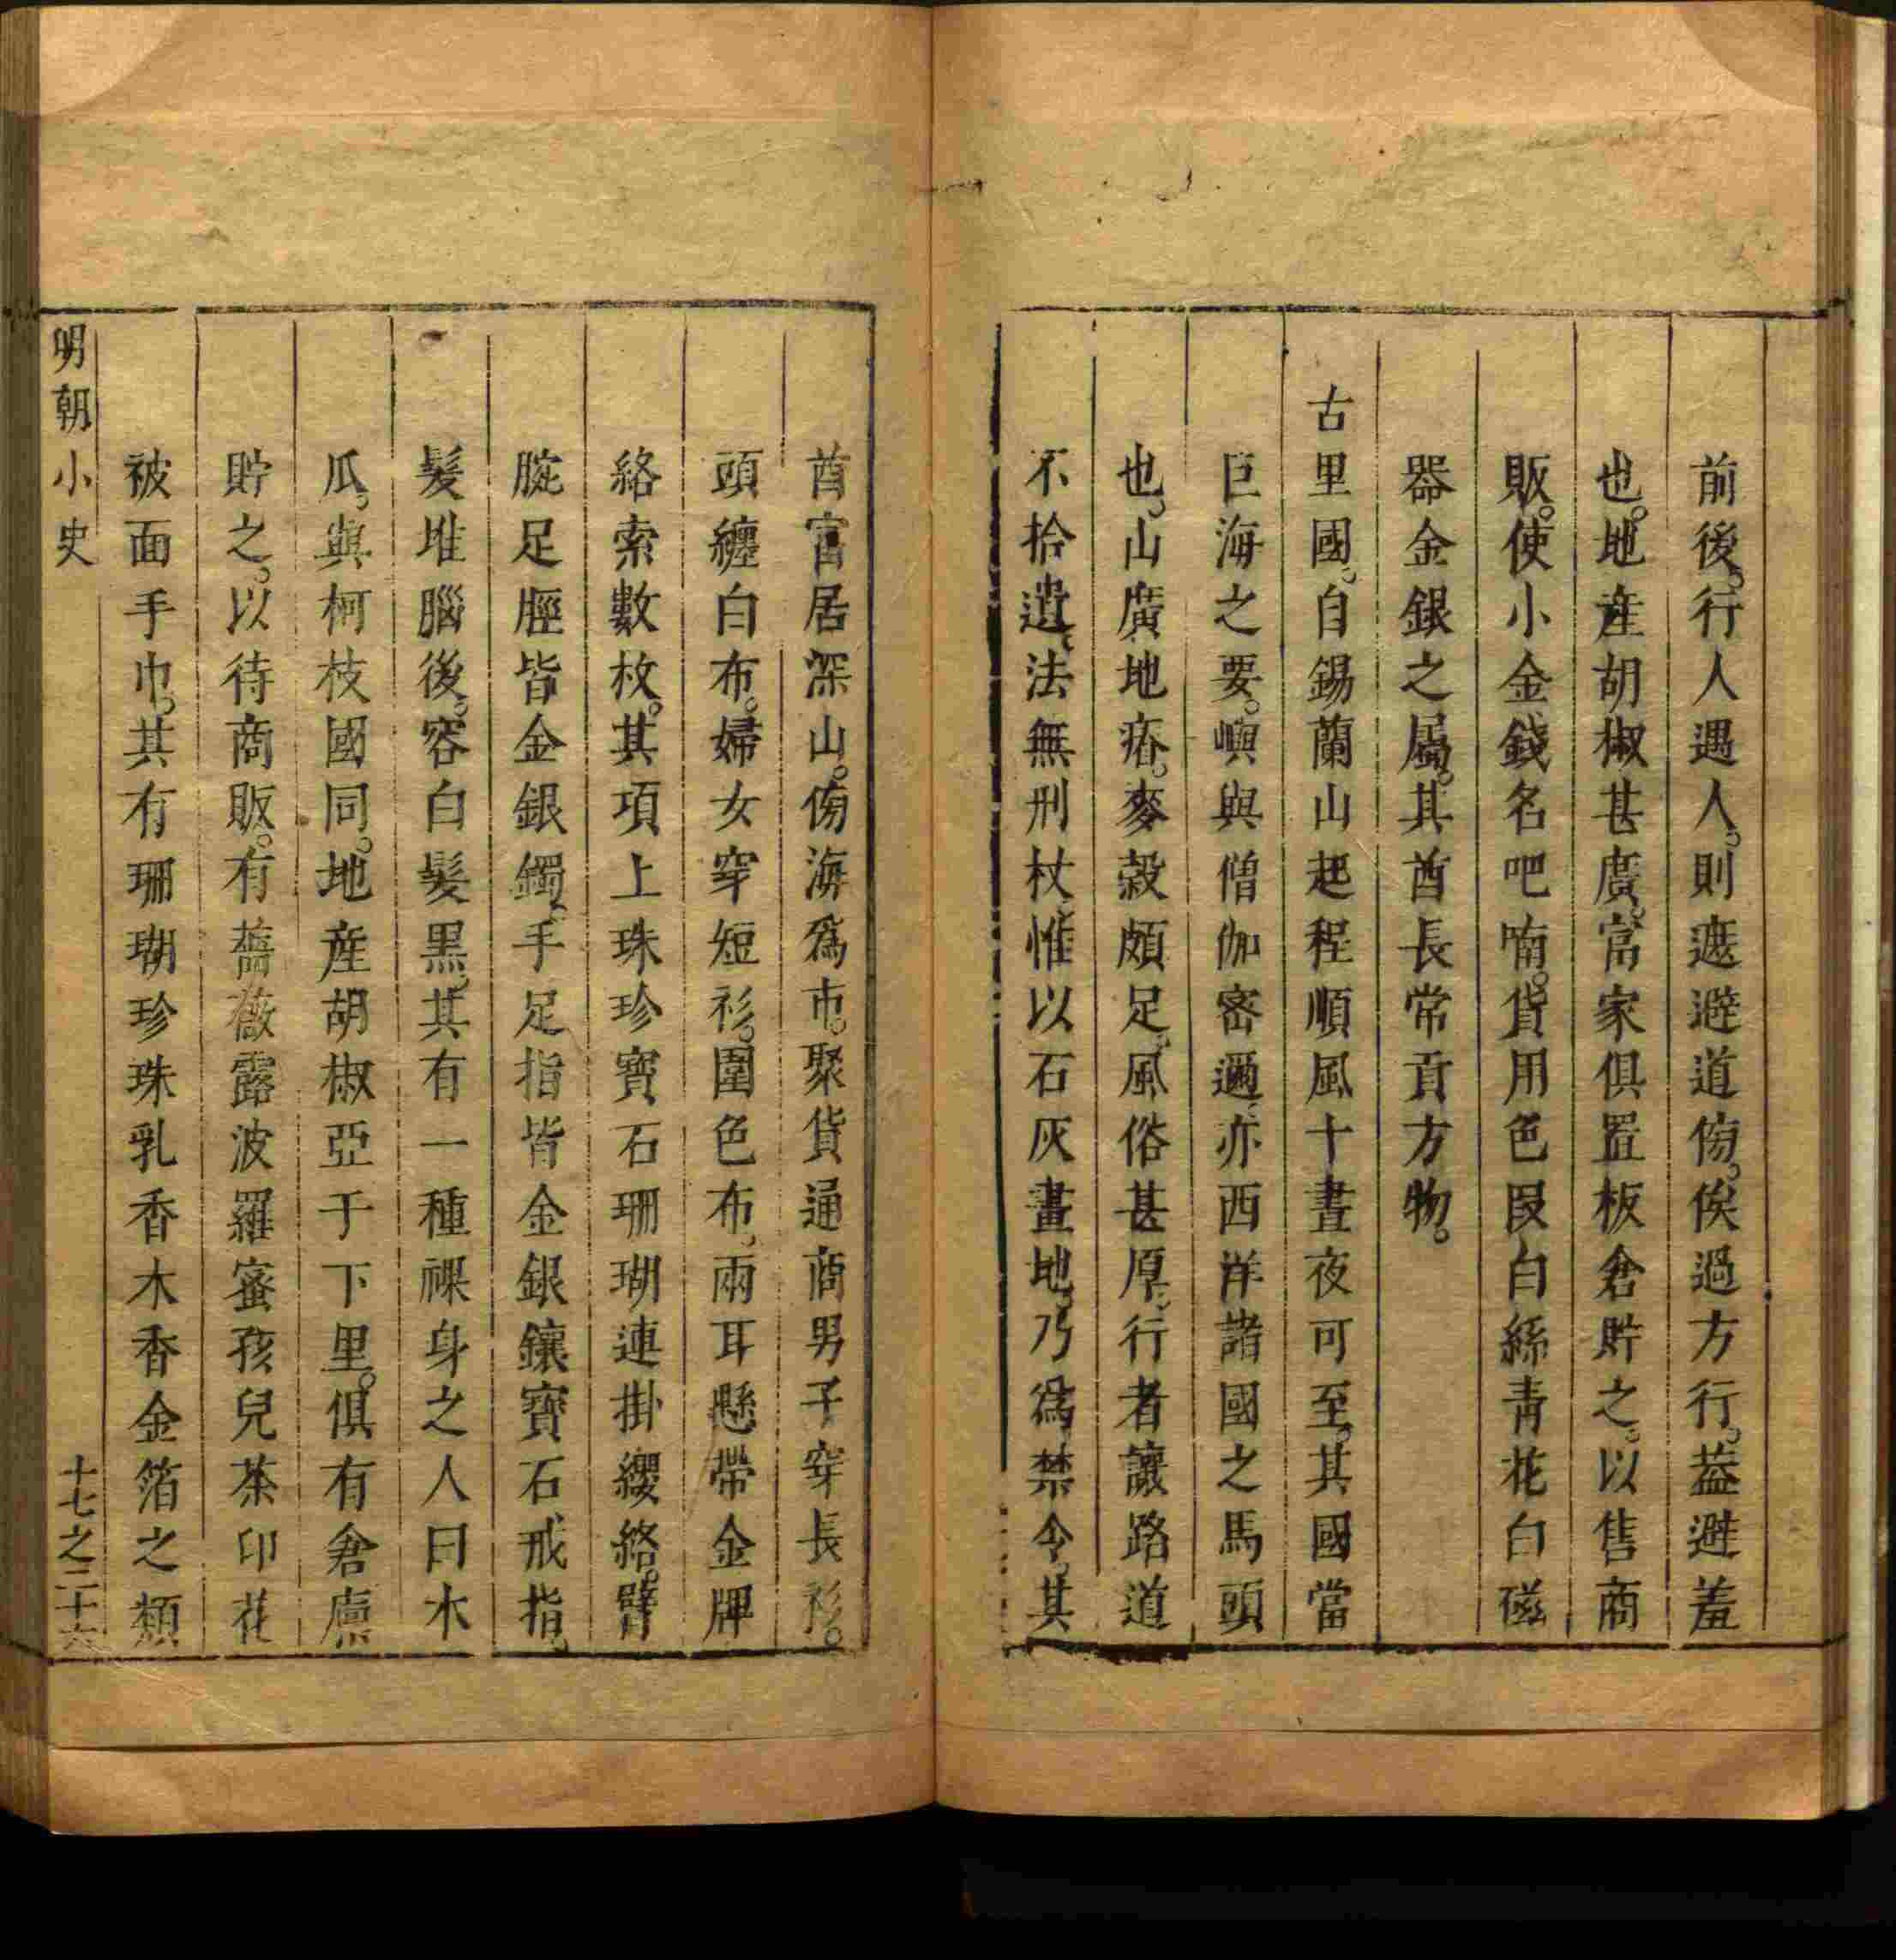 前後。行人遇人。則遮避道傍。俟過方行。葢避羞
也。地産胡椒甚廣。富家俱置板倉貯之。以售商
販。使小金錢名吧喃。貨用色叚白絲青花白磁
器金銀之屬。其酋長常貢方物。
古里國。自錫蘭山起程順風十晝夜可至。其國當
巨海之要。嶼與僧伽密邇。亦西洋諸國之馬頭
也。山廣地瘠。麥穀頗足。風俗甚厚。行者讓路道
不拾遺。法無刑杖。惟以石灰畫地。乃爲禁令。其
酋富居深山。傍海爲市。聚貨通商男子穿長衫。
頭纏白布。婦女穿短衫。圍色布。兩耳懸帶金牌
絡索數枚。其項上珠珍寶石珊瑚連掛纓絡。臂
腕足脛皆金銀鐲。手足指皆金銀鑲寶石戒指。
髪堆腦後。容白髪黒。其有一種裸身之人曰木
瓜。與柯枝國同。地産胡椒亞于下里。俱有倉廪
貯之。以待商販。有薔薇露波羅蜜孩兒茶印花
被面手巾。其有珊瑚珍珠乳香木香金箔之類
明朝小史
十七之二十六